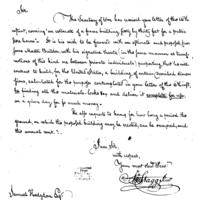 Sir
The Secretary of War has received your letter of the 16th
instant, covering an estimate of a frame building forty by thirty feet for a public
store house. It is his wish to be favored with an estimate and proposal from
some Master Builder, with his signature thereto, in the same manner as transac-
tions of this kind are between private individuals; purporting that he will
contract to build, for the United States, a building of certain described dimen-
sions, calculated for the purpose contemplated in your letter of the
by finding all the materials, Locks &c and deliver it complete for use
on a given day for so much money.
He also requests to know for how long a period the
ground, on which the proposed building may be erected, can be occupied, and
the annual rent.
I am, Sir,
with respect,
Your most obed Servt
Jno Stagg Jr
Samuel Hodgdon Esqr